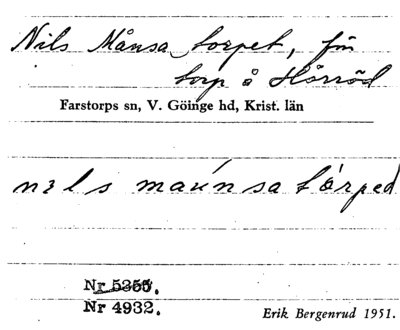 Nils Månsa torpet, f.n
torp å Hörröd
Farstorps sn, V. Göinge hd, Krist. län
nils maúnsa tórped
Nr 5355.
Nr 4932.
Erik Bergenrud 1951.